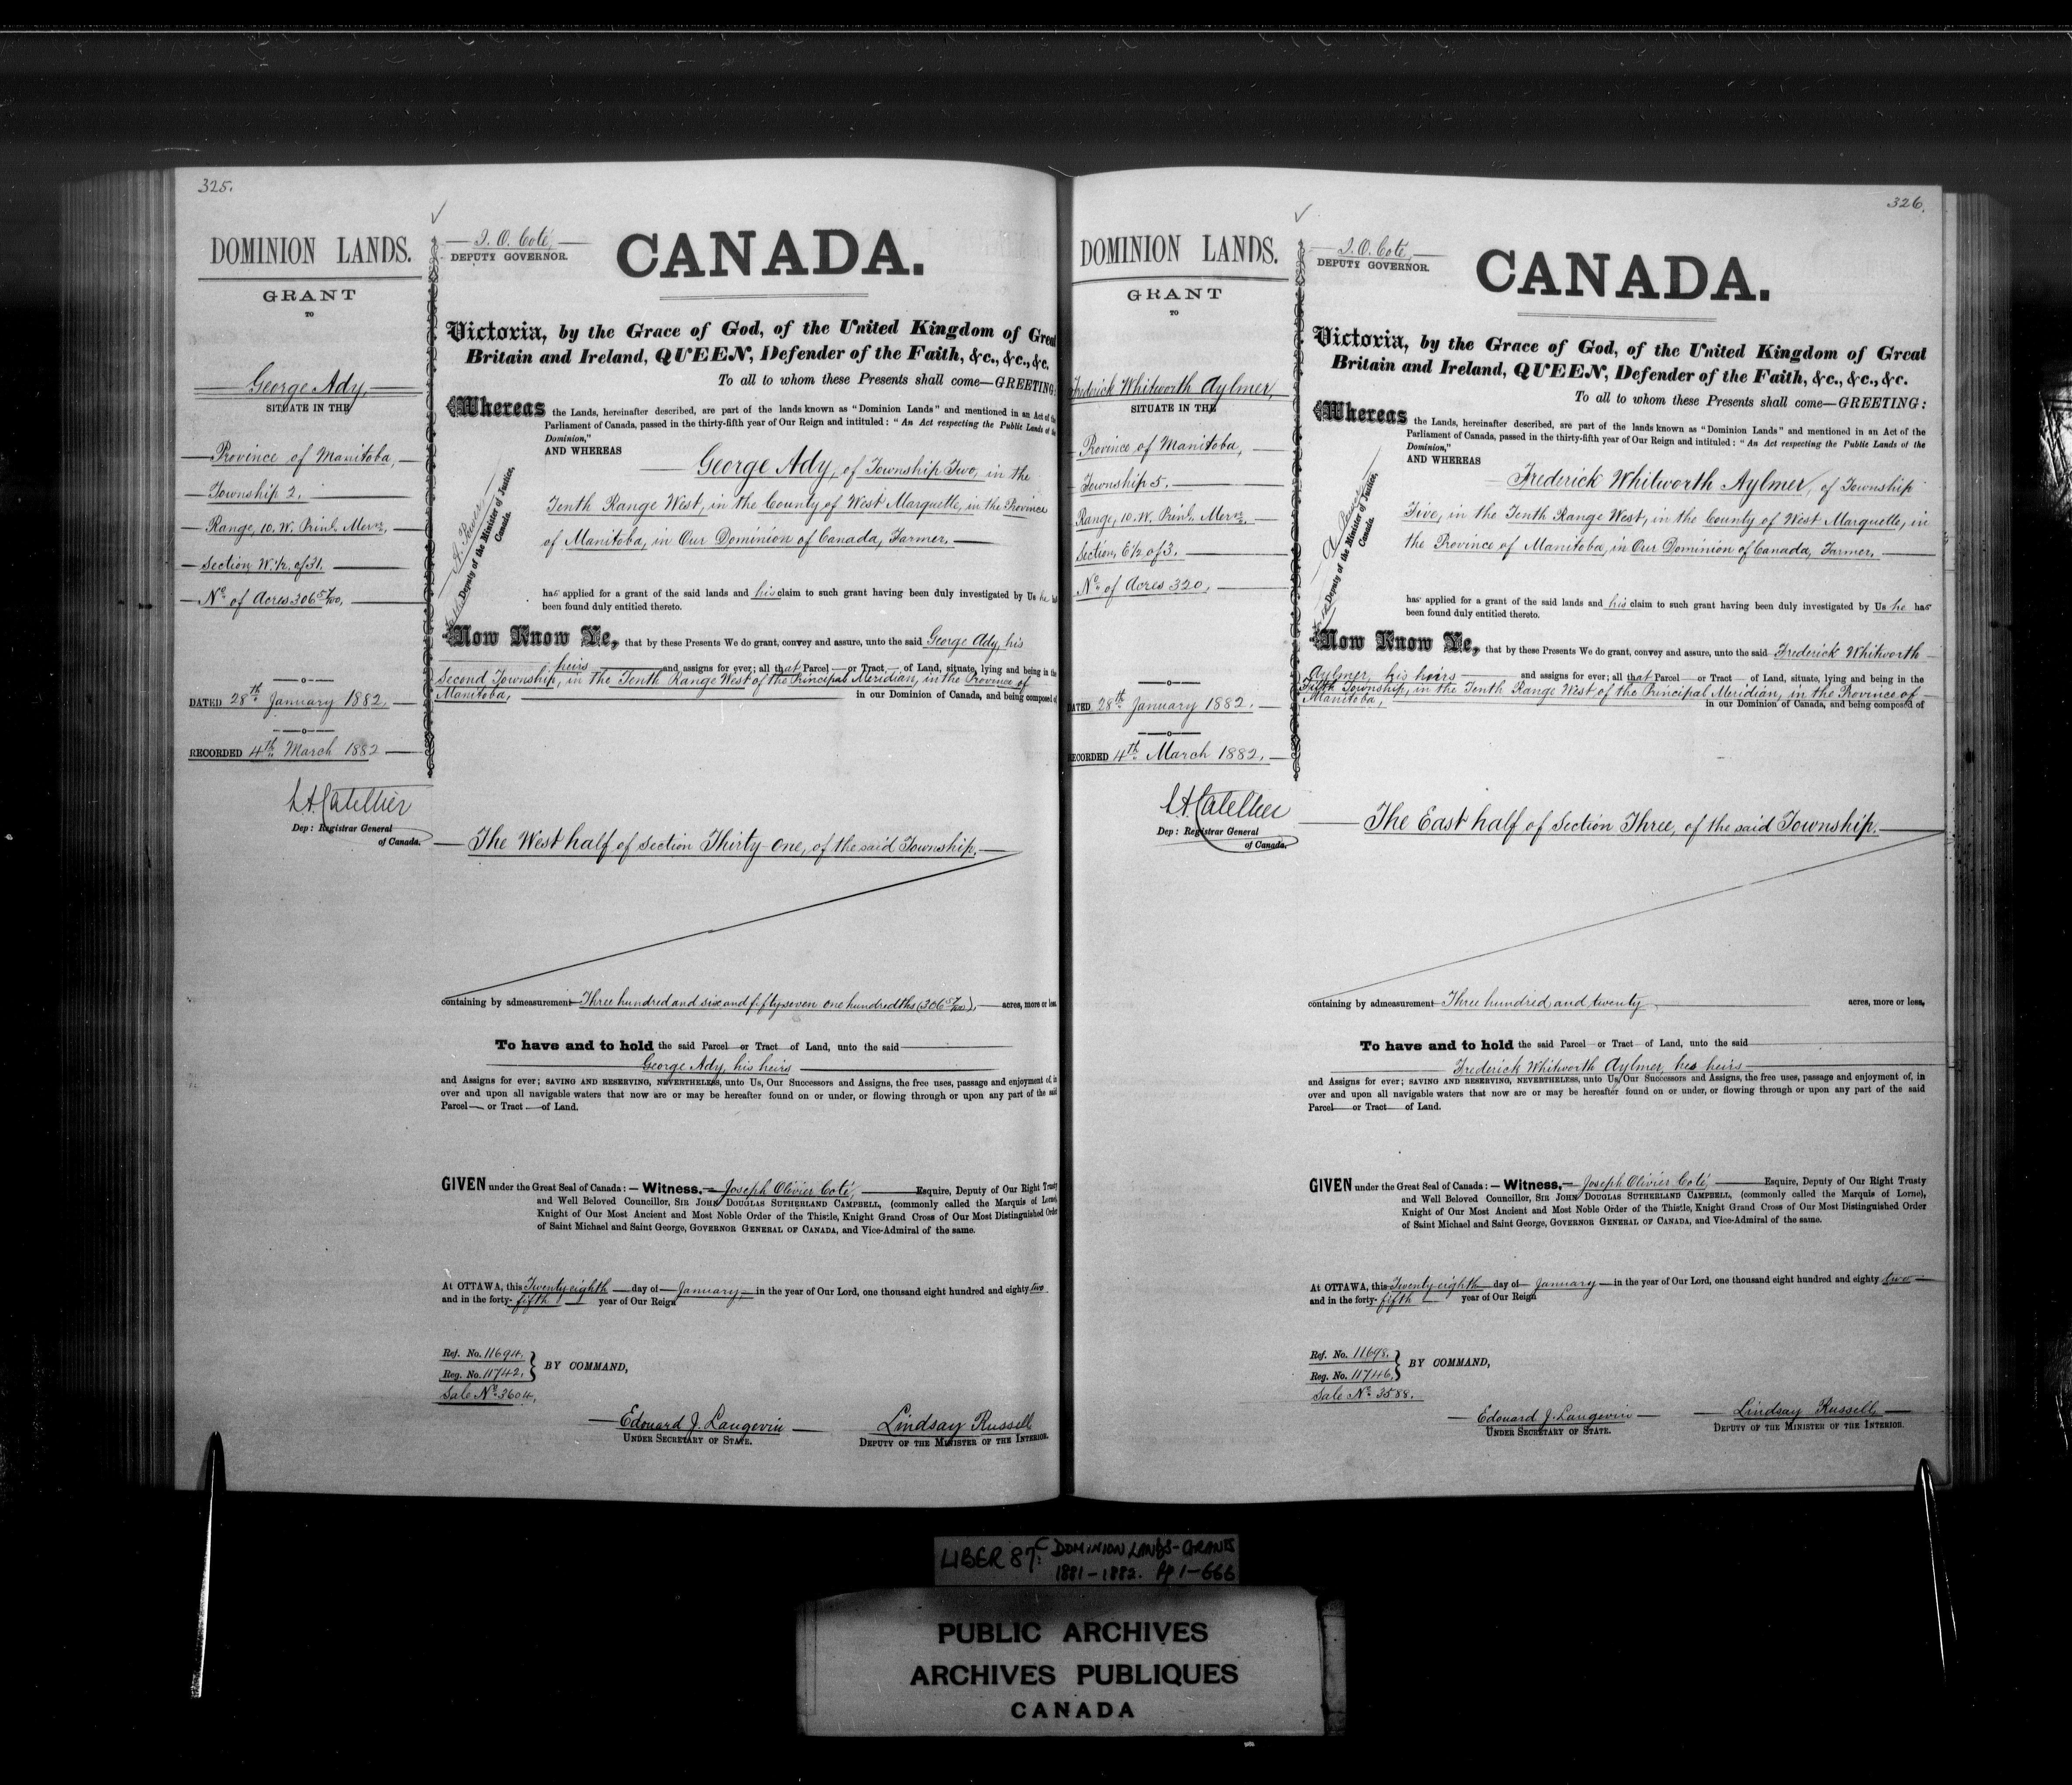 325.
DOMINION LANDS.
GRANT
TO
George Ady,
SITUATE IN THE
Province of Manitoba,
Township 2.
Range, 10. W. Prinl. Mern.
Section, W. ½. of 31.
No. of Acres 306 57/100,
DATED 28th January 1882.
RECORDED 4th March 1882
L. A. Catellier
Dep: Registrar General
of Canada.
J. O. Coté,
DEPUTY GOVERNOR.
CANADA.
Victoria, by the Grace of God, of the United Kingdom of Great
Britain and Ireland, QUEEN, Defender of the Faith, &c., &c., &c.
To all to whom these Presents shall come—GREETING:
Whereas the Lands, hereinafter described, are part of the lands known as "Dominion Lands" and mentioned in an Act of the
Parliament of Canada, passed in the thirty-fifth year of Our Reign and intituled: "An Act respecting the Public Lands of the
Dominion,"
AND WHEREAS
George Ady, of Township Two, in the
Tenth Range West, in the County of West Marquette, in the Province
of Manitoba, in Our Dominion of Canada, Farmer,
A. Power
Deputy of the Minister of Justice,
Canada.
has applied for a grant of the said lands and his claim to such grant having been duly investigated by Us he has
been found duly entitled thereto.
Now Know Ye, that by these Presents We do grant, convey and assure, unto the said George Ady, his
heirs and assigns for ever; all that Parcel or Tract of Land, situate, lying and being in the
Second Township, in the Tenth Range West of the Principal Meridian, in the Province of
Manitoba, in our Dominion of Canada, and being composed of
The West half of Section Thirty-One, of the said Township.
containing by admeasurement Three hundred and six and fifty seven one hundredths (306 57/100), acres, more or less.
To have and to hold the said Parcel or Tract of Land, unto the said
George Ady, his heirs
and Assigns for ever; SAVING AND RESERVING, NEVERTHELESS, unto Us, Our Successors and Assigns, the free uses, passage and enjoyment of, in
over and upon all navigable waters that now are or may be hereafter found on or under, or flowing through or upon any part of the said
Parcel or Tract of Land.
GIVEN under the Great Seal of Canada:—Witness,—Joseph Olivier Coté, Esquire, Deputy of Our Right Trusty
and Well Beloved Councillor, SIR JOHN DOUGLAS SUTHERLAND CAMPBELL, (commonly called the Marquis of Lorne),
Knight of Our Most Ancient and Most Noble Order of the Thistle, Knight Grand Cross of Our Most Distinguished Order
of Saint Michael and Saint George, GOVERNOR GENERAL OF CANADA, and Vice-Admiral of the same.
At OTTAWA, this Twenty eighth day of January in the year of Our Lord, one thousand eight hundred and eighty two
and in the forty-fifth year of Our Reign
Ref. No. 11694.
Reg. No. 11742. BY COMMAND,
Sale No. 3604.
Edouard J. Langevin Lindsay Russell
UNDER SECRETARY OF STATE. DEPUTY OF THE MINISTER OF THE INTERIOR.
326.
DOMINION LANDS.
GRANT
TO
Frederick Whitworth Aylmer,
SITUATE IN THE
Province of Manitoba,
Township 5.
Range, 10. W. Prinl. Mern.
Section, E ½ of 3.
No. of Acres 320,
DATED 28th January 1882.
RECORDED 4th March 1882.
L. A. Catellier
Dep: Registrar General
of Canada.
J. O. Coté,
DEPUTY GOVERNOR.
CANADA.
Victoria, by the Grace of God, of the United Kingdom of Great
Britain and Ireland, QUEEN, Defender of the Faith, &c., &c., &c.
To all to whom these Presents shall come—GREETING:
Whereas the Lands, hereinafter described, are part of the lands known as "Dominion Lands" and mentioned in an Act of the
Parliament of Canada, passed in the thirty-fifth year of Our Reign and intituled: "An Act respecting the Public Lands of the
Dominion,"
AND WHEREAS
Frederick Whitworth Aylmer, of Township
Five, in the Tenth Range West, in the County of West Marquette, in
the Province of Manitoba, in Our Dominion of Canada, Farmer,
A. Power
Deputy of the Minister of Justice,
Canada.
has applied for a grant of the said lands and his claim to such grant having been duly investigated by Us he has
been found duly entitled thereto.
Now Know Ye, that by these Presents We do grant, convey and assure, unto the said Frederick Whitworth
Aylmer, his heirs and assigns for ever; all that Parcel or Tract of Land, situate, lying and being in the
Fifth Township, in the Tenth Range West of the Principal Meridian, in the Province of
Manitoba, in our Dominion of Canada, and being composed of
The East half of Section Three, of the said Township.
containing by admeasurement Three hundred and twenty acres, more or less,
To have and to hold the said Parcel or Tract of Land, unto the said
Frederick Whitworth Aylmer, his heirs
and Assigns for ever; SAVING AND RESERVING, NEVERTHELESS, unto Us, Our Successors and Assigns, the free uses, passage and enjoyment of, in
over and upon all navigable waters that now are or may be hereafter found on or under, or flowing through or upon any part of the said
Parcel or Tract of Land.
GIVEN under the Great Seal of Canada:—Witness,—Joseph Olivier Coté, Esquire, Deputy of Our Right Trusty
and Well Beloved Councillor, SIR JOHN DOUGLAS SUTHERLAND CAMPBELL, (commonly called the Marquis of Lorne),
Knight of Our Most Ancient and Most Noble Order of the Thistle, Knight Grand Cross of Our Most Distinguished Order
of Saint Michael and Saint George, GOVERNOR GENERAL OF CANADA, and Vice-Admiral of the same.
At OTTAWA, this Twenty eighth day of January in the year of Our Lord, one thousand eight hundred and eighty two
and in the forty-fifth year of Our Reign
Ref. No. 11698.
Reg. No. 11746. BY COMMAND,
Sale No. 3588.
Edouard J. Langevin Lindsay Russell
UNDER SECRETARY OF STATE. DEPUTY OF THE MINISTER OF THE INTERIOR.
LIBER 87C: DOMINION LANDS-GRANTS
1881-1882. Pp 1-666
PUBLIC ARCHIVES
ARCHIVES PUBLIQUES
CANADA